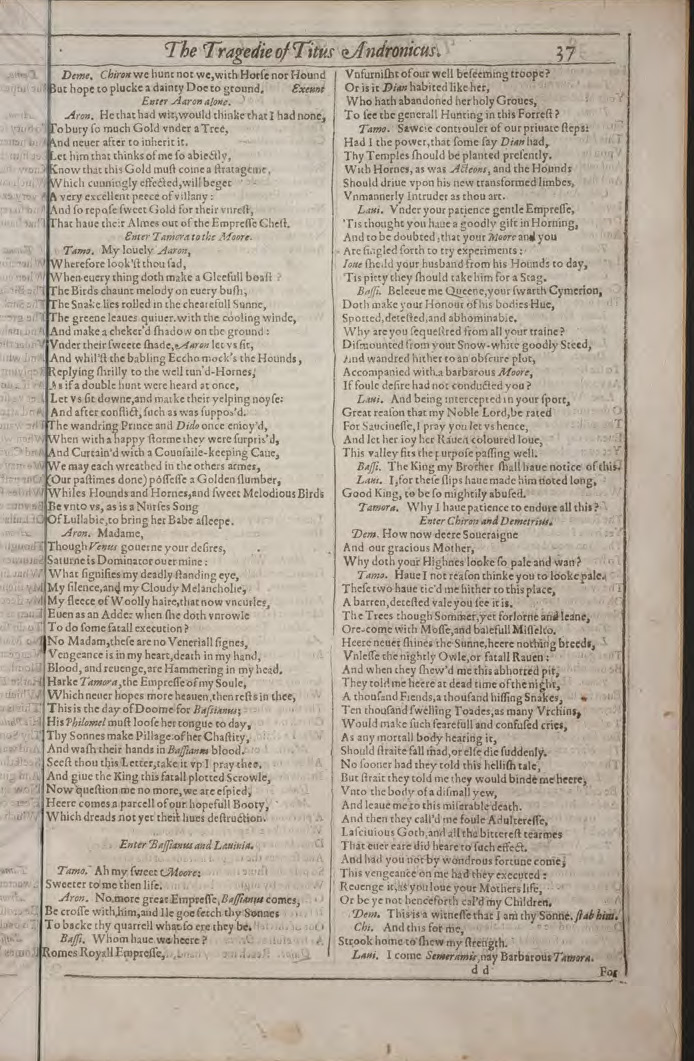 The Tragedie of Titus Andronicus. 37
Deme. Chiron we hunt not we, with Horse nor Hound
But hope to plucke a dainty Doe to ground. Exeunt
Enter Aaron alone.
Aron. He that had wit, would thinke that I had none,
To bury so much Gold vnder a Tree,
And neuer after to inherit it.
Let him that thinks of me so abiectly,
Know that this Gold must coine a stratageme,
Which cunningly effected, will beget
A very excellent peece of villany:
And so repose sweet Gold for their vnrest,
That haue their Almes out of the Empresse Chest.
Enter Tamora to the Moore.
Tamo. My louely Aaron,
Wherefore look'st thou sad,
When euery thing doth make a Gleefull boast?
The Birds chaunt melody on euery bush,
The Snake lies rolled in the chearefull Sunne,
The greene leaues quiuer. with the cooling winde,
And make a cheker'd shadow on the ground:
Vnder their sweete shade, Aaron let vs sit,
And whil'st the babling Eccho mock's the Hounds,
Replying shrilly to the well tun'd-Hornes,
As if a double hunt were heard at once,
Let vs sit downe, and marke their yelping noyse:
And after conflict, such as was suppos'd.
The wandring Prince and Dido once enioy'd,
When with a happy storme they were surpris'd,
And Curtain'd with a Counsaile-keeping Caue,
We may each wreathed in the others armes,
(Our pastimes done) possesse a Golden slumber,
Whiles Hounds and Hornes, and sweet Melodious Birds
Be vnto vs, as is a Nurses Song
Of Lullabie, to bring her Babe asleepe.
Aron. Madame,
Though Venus gouerne your desires,
Saturne is Dominator ouer mine:
What signifies my deadly standing eye,
My silence, and my Cloudy Melancholie,
My fleece of Woolly haire, that now vncurles,
Euen as an Adder when she doth vnrowle
To do some fatall execution?
No Madam, these are no Veneriall signes,
Vengeance is in my heart, death in my hand,
Blood, and reuenge, are Hammering in my head.
Harke Tamora, the Empresse of my Soule,
Which neuer hopes more heauen, then rests in thee,
This is the day of Doome for Bassianus;
His Philomel must loose her tongue to day,
Thy Sonnes make Pillage of her Chastity,
And wash their hands in Bassianus blood.
Seest thou this Letter, take it vp I pray thee,
And giue the King this fatall plotted Scrowle,
Now question me no more, we are espied,
Heere comes a parcell of our hopefull Booty,
Which dreads not yet their liues destruction.
Enter Bassianus and Lauinia.
Tamo. Ah my sweet Moore:
Sweeter to me then life.
Aron. No more great Empresse, Bassianus comes,
Be crosse with him, and Ile goe fetch thy Sonnes
To backe thy quarrell what so ere they be.
Bassi. Whom haue we heere?
Romes Royall Empresse,
Vnfurnisht of our well beseeming troope?
Or is it Dian habited like her,
Who hath abandoned her holy Groues,
To see the generall Hunting in this Forrest?
Tamo. Sawcie controuler of our priuate steps:
Had I the power, that some say Dian had,
Thy Temples should be planted presently.
With Hornes, as was Acteons, and the Hounds
Should driue vpon his new transformed limbes,
Vnmannerly Intruder as thou art.
Laui. Vnder your patience gentle Empresse,
'Tis thought you haue a goodly gift in Horning,
And to be doubted, that your Moore and you
Are singled forth to try experiments:
Ioue sheild your husband from his Hounds to day,
'Tis pitty they should take him for a Stag.
Bassi. Beleeue me Queene, your swarth Cymerion,
Doth make your Honour of his bodies Hue,
Spotted, detested, and abhominable.
Why are you sequestred from all your traine?
Dismounted from your Snow-white goodly Steed,
And wandred hither to an obscure plot,
Accompanied with a barbarous Moore,
If foule desire had not conducted you?
Laui. And being intercepted in your sport,
Great reason that my Noble Lord, be rated
For Saucinesse, I pray you let vs hence,
And let her ioy her Rauen coloured loue,
This valley fits the purpose passing well.
Bassi. The King my Brother shall haue notice of this.
Laui. I, for these slips haue made him noted long,
Good King, to be so mightily abused.
Tamora. Why I haue patience to endure all this?
Enter Chiron and Demetrius.
Dem. How now deere Soueraigne
And our gracious Mother,
Why doth your Highnes looke so pale and wan?
Tamo. Haue I not reason thinke you to looke pale.
These two haue tic'd me hither to this place,
A barren, detested vale you see it is.
The Trees though Sommer, yet forlorne and leane,
Ore-come with Mosse, and balefull Misselto.
Heere neuer shines the Sunne, heere nothing breeds,
Vnlesse the nightly Owle, or fatall Rauen:
And when they shew'd me this abhorred pit,
They told me heere at dead time of the night,
A thousand Fiends, a thousand hissing Snakes,
Ten thousand swelling Toades, as many Vrchins,
Would make such fearefull and confused cries,
As any mortall body hearing it,
Should straite fall mad, or else die suddenly.
No sooner had they told this hellish tale,
But strait they told me they would binde me heere,
Vnto the body of a dismall yew,
And leaue me to this miserable death.
And then they call'd me foule Adulteresse,
Lasciuious Goth, and all the bitterest tearmes
That euer eare did heare to such effect.
And had you not by wondrous fortune come,
This vengeance on me had they executed:
Reuenge it, as you loue your Mothers life,
Or be ye not henceforth cal'd my Children.
Dem. This is a witnesse that I am thy Sonne. stab him.
Chi. And this for me,
Strook home to shew my strength.
Laui. I come Semeramis, nay Barbarous Tamora.
d d For